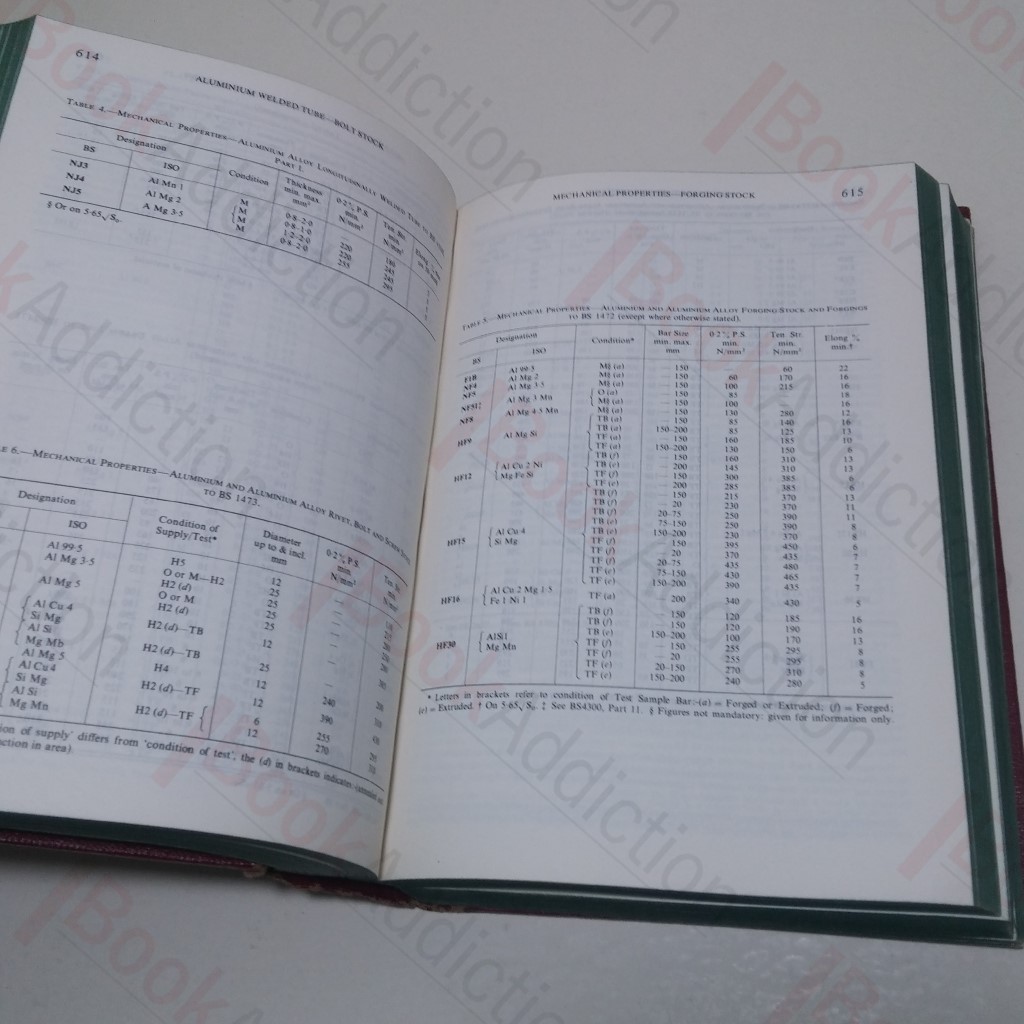 614
ALUMINIUM WELDED TUBE—BOLT STOCK
TABLE 4.—MECHANICAL PROPERTIES—ALUMINIUM ALLOY LONGITUDINALLY WELDED TUBE TO BS
PART 1.
Designation
BS ISO Condition Thickness min. max. mm² 0·2% P.S. min. N/mm² Ten. Str. min. N/mm² Elong.
NJ3 Al Mn 1 M 0·8–2·0
NJ4 Al Mg 2 M 0·8–1·0 220
M 1·2–2·0 220 245
NJ5 A Mg 3·5 M 0·8–2·0 255
§ Or on 5·65√S₀.
E 6.—MECHANICAL PROPERTIES—ALUMINIUM AND ALUMINIUM ALLOY RIVET, BOLT AND SCREW
TO BS 1473.
Designation
ISO Condition of Supply/Test* Diameter up to & incl. mm 0·2% P.S. min. N/mm² Ten. Str. min. N/mm²
Al 99·5 H5 12 —
Al Mg 3·5 O or M—H2 25 —
H2 (d) 25 —
Al Mg 5 O or M 25 —
H2 (d) 25 —
Al Cu 4 Si Mg H2 (d)—TB 12 —
Al Si Mg Mb H2 (d)—TB 25 —
Al Mg 5 H4 12 —
Al Cu4 Si Mg H2 (d)—TF 12 240
Al Si Mg Mn H2 (d)—TF 6 255
12 270
ion of supply' differs from 'condition of test', the (d) in brackets indicates
ction in area)
MECHANICAL PROPERTIES—FORGING STOCK 615
TABLE 5.—MECHANICAL PROPERTIES—ALUMINIUM AND ALUMINIUM ALLOY FORGING STOCK AND FORGINGS
TO BS 1472 (except where otherwise stated).
Designation
BS ISO Condition* Bar Size min. max. mm 0·2% P.S. min. N/mm² Ten. Str. min. N/mm² Elong % min.†
F1B Al 99·5 M§ (a) — 150 60 22
NF4 Al Mg 2 M§ (a) — 150 60 170 16
NF5 Al Mg 3·5 M§ (a) — 150 100 215 16
NF51‡ Al Mg 3 Mn O (a) — 150 85 18
M§ (a) — 150 100 16
NF8 Al Mg 4·5 Mn M§ (a) — 150 130 280 12
HF9 Al Mg Si TB (a) — 150 85 140 16
TB (a) 150–200 85 125 13
TF (a) — 150 160 185 10
TF (a) 150–200 130 150 6
HF12 Al Cu 2 Ni Mg Fe Si TB (f) — 150 160 310 13
TB (e) — 200 145 310 13
TF (f) — 150 300 385 6
TF (e) — 200 285 385 6
HF15 Al Cu 4 Si Mg TB (f) — 150 215 370 13
TB (e) — 20 230 370 11
TB (e) 20–75 250 390 11
TB (e) 75–150 250 390 8
TB (e) 150–200 230 370 8
TF (f) — 150 395 450 6
TF (e) — 20 435 7
TF (e) 20–75 435 480 7
TF (e) 75–150 430 465 7
TF (e) 150–200 390 435 7
HF16 Al Cu 2 Mg 1·5 Fe 1 Ni 1 TF (a) — 200 340 430 5
HF30 AlSi1 Mg Mn TB (f) — 150 120 185 16
TB (e) — 150 120 190 16
TB (e) 150–200 100 170 13
TF (f) — 150 255 295 8
TF (e) — 20 255 295 8
TF (e) 20–150 270 310 8
TF (e) 150–200 240 280 5
* Letters in brackets refer to condition of Test Sample Bar:-(a) = Forged or Extruded; (f) = Forged;
(e) = Extruded. † On 5·65√S₀. ‡ See BS4300, Part 11. § Figures not mandatory: given for information only.
Book Addiction